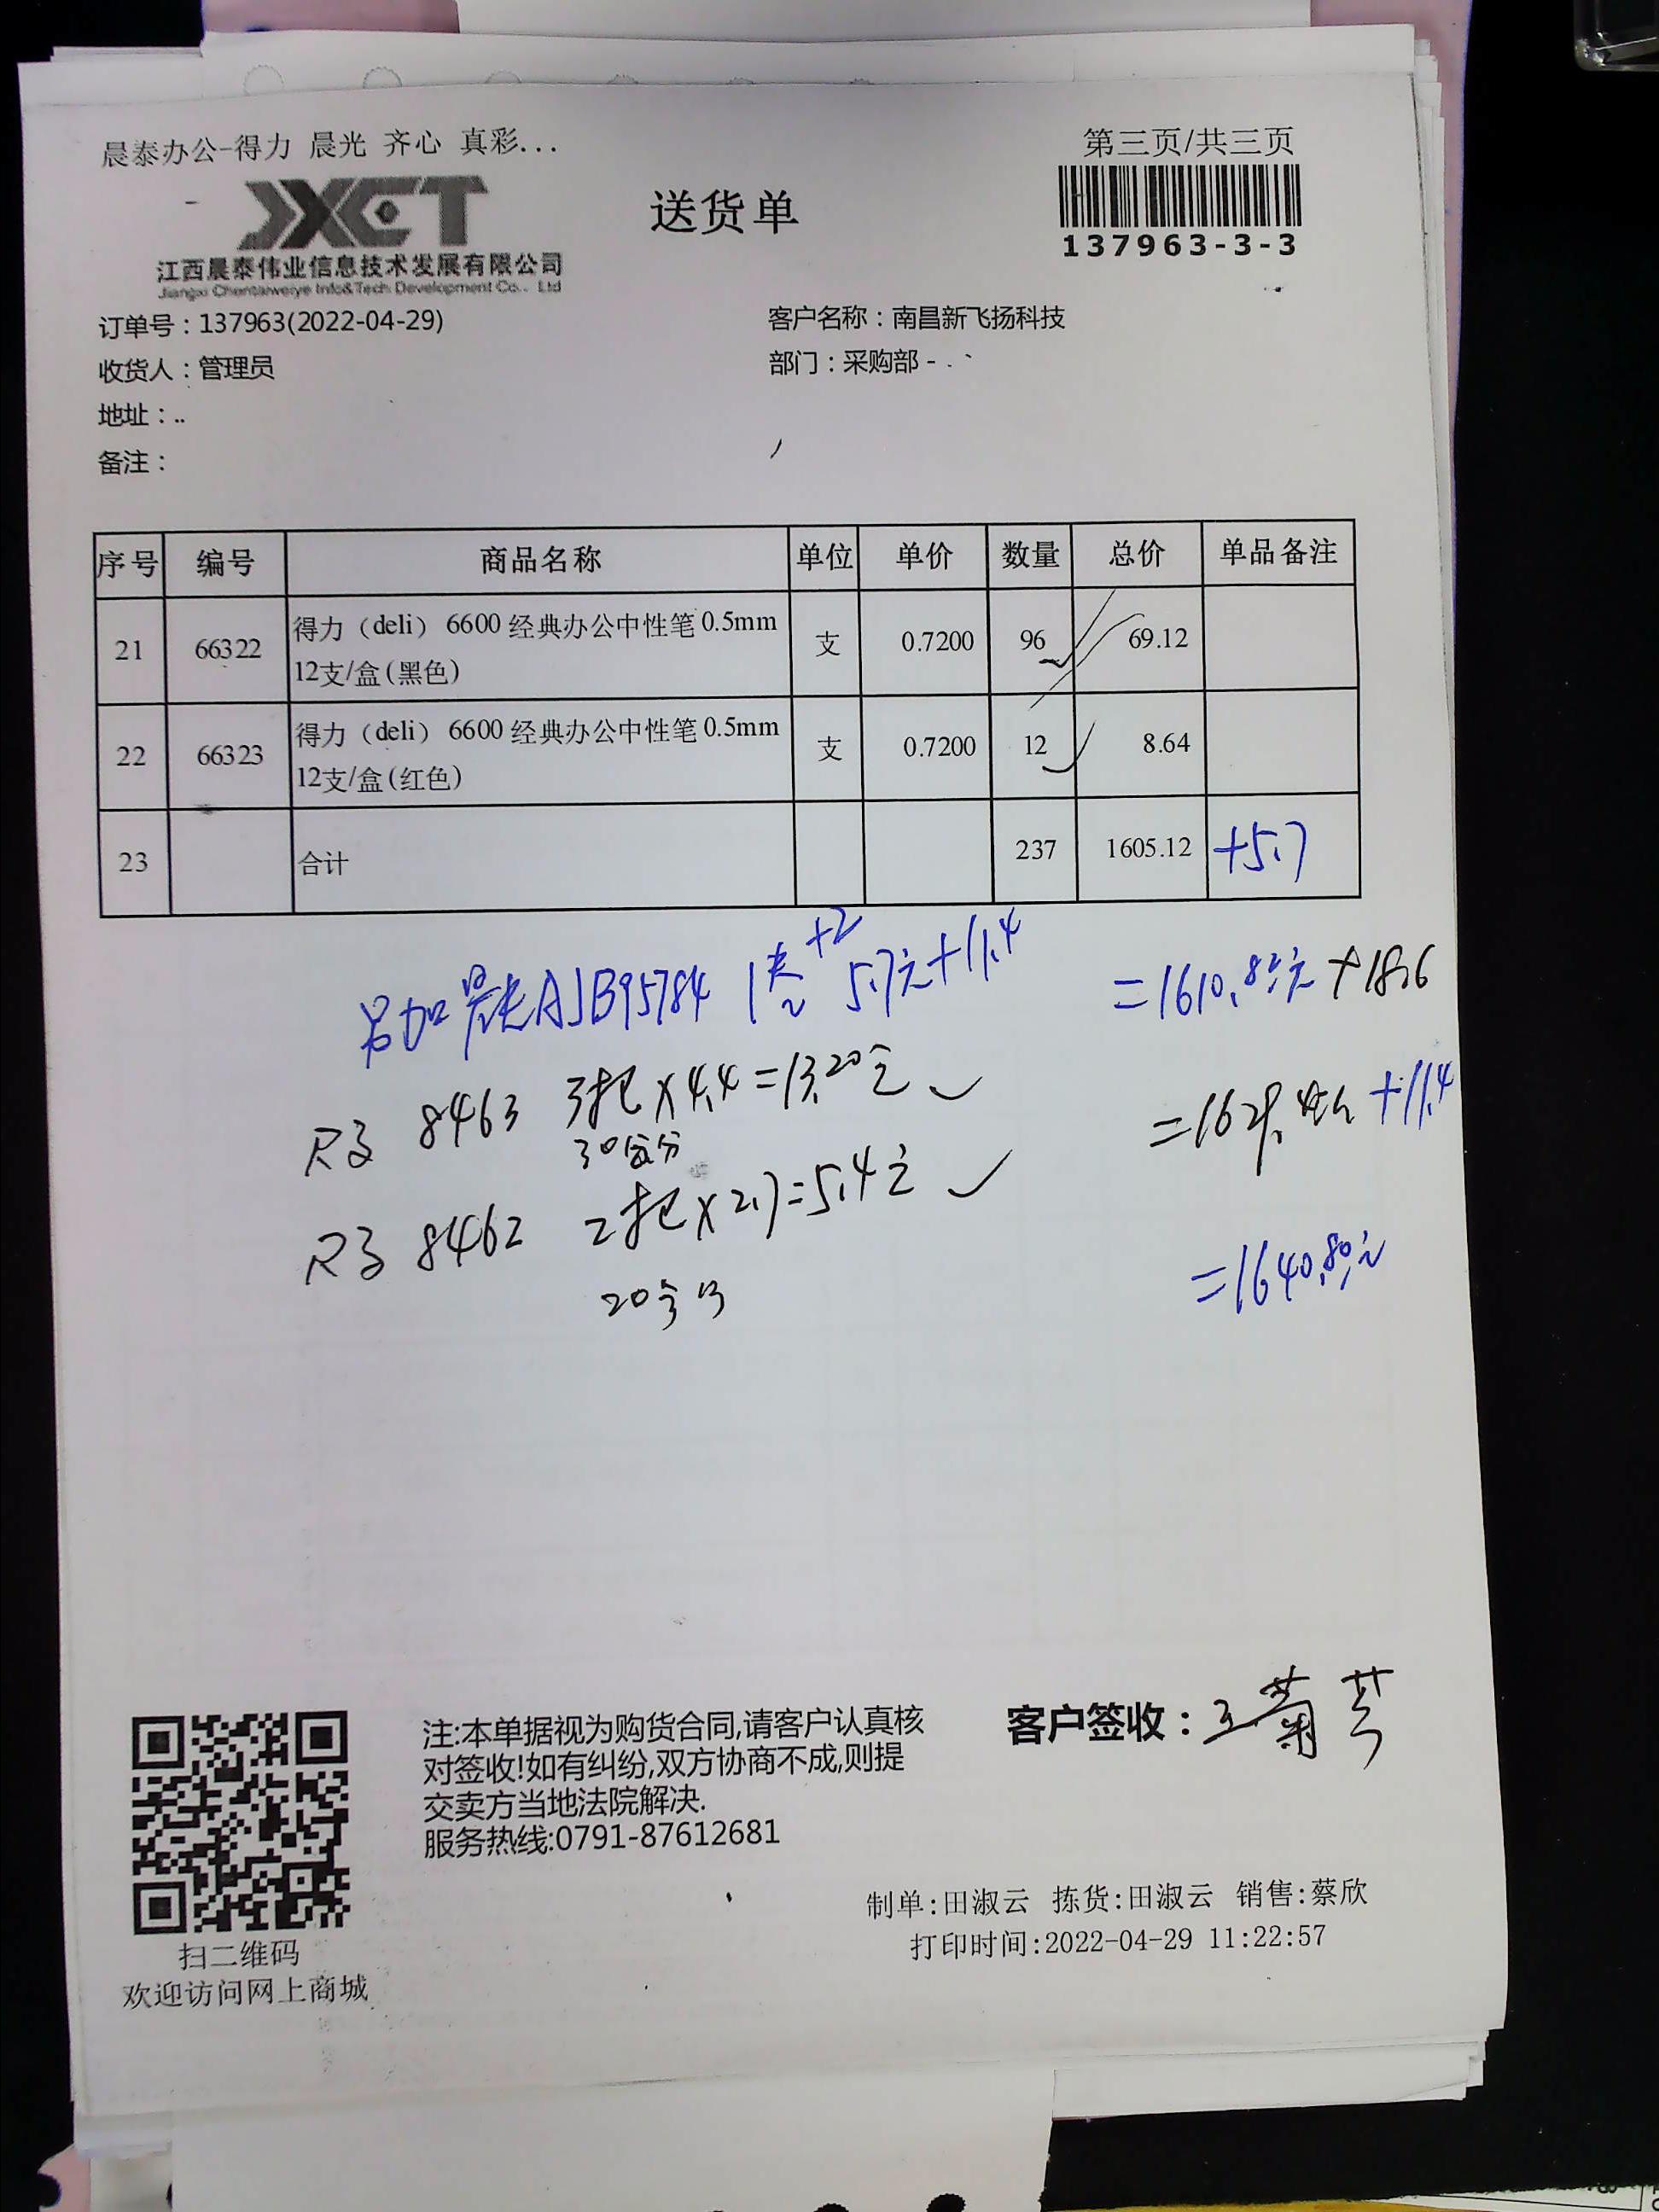 晨泰办公-得力 晨光 齐心 真彩...
第三页/共三页
JXCT
送货单
137963-3-3
江西晨泰伟业信息技术发展有限公司
Jiangxi Chentaiweiye Info&Tech Development Co., Ltd
订单号：137963(2022-04-29)
客户名称：南昌新飞扬科技
收货人：管理员
部门：采购部 -
地址：..
备注：
序号 编号 商品名称 单位 单价 数量 总价 单品备注
21 66322 得力（deli）6600 经典办公中性笔 0.5mm 12支/盒(黑色) 支 0.7200 96 69.12
22 66323 得力（deli）6600 经典办公中性笔 0.5mm 12支/盒(红色) 支 0.7200 12 8.64
23 合计 237 1605.12 +5.7
另加晨光AJB95784 1卷+2 5.7元+11.4
=1610.82元+18.6
尺子 8463 3把×4.4=13.20元
30公分
=1629.4元+11.4
尺子 8462 2把×2.7=5.4元
20公分
=1640.80元
注:本单据视为购货合同,请客户认真核
对签收!如有纠纷,双方协商不成,则提
交卖方当地法院解决.
服务热线:0791-87612681
客户签收：王菊芳
制单:田淑云 拣货:田淑云 销售:蔡欣
打印时间:2022-04-29 11:22:57
扫二维码
欢迎访问网上商城